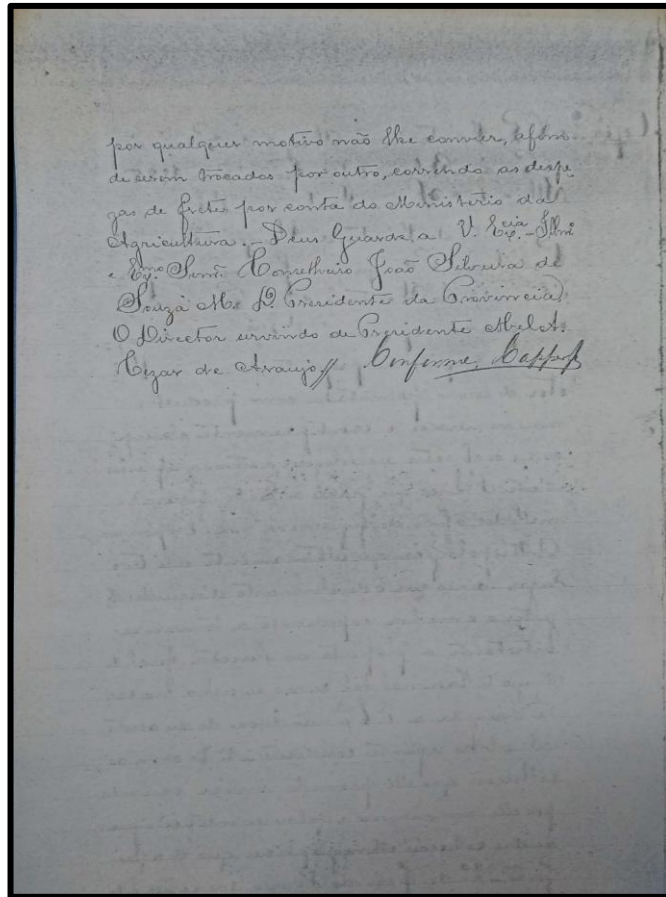 por qualquer motivo não lhe convier, afim
de serem trocados por outro, correndo as despe
zas de frete por conta do Ministerio da
Agricultura. – Deus Guarde a V. Ex.cia – Illmo
e Exmo. Snr. Conselheiro João Silveira de
Souza M. D. Presidente da Provincia
O Director servindo de Presidente
Cezar de Araujo // Conforme,